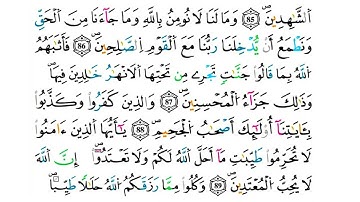 اَ۬لشَّٰهِدِينَۖ 85 وَمَا لَنَا لَا نُومِنُ بِاللَّهِ وَمَا جَآءَنَا مِنَ اَ۬لْحَقِّ
وَنَطْمَعُ أَنْ يُّدْخِلَنَا رَبُّنَا مَعَ اَ۬لْقَوْمِ اِ۬لصَّٰلِحِينَۖ 86 فَأَثَٰبَهُمُ
اُ۬للَّهُ بِمَا قَالُواْ جَنَّٰتٍ تَجْرِے مِن تَحْتِهَا اَ۬لْأَنْهَٰرُ خَٰلِدِينَ فِيهَاۖ
وَذَٰلِكَ جَزَآءُ اُ۬لْمُحْسِنِينَۖ 87 وَالَّذِينَ كَفَرُواْ وَكَذَّبُواْ
بِـَٔايَٰتِنَآ أُوْلَٰٓئِكَ أَصْحَٰبُ اُ۬لْجَحِيمِۖ 88 يَٰٓأَيُّهَا اَ۬لذِينَ ءَامَنُواْ
لَا تُحَرِّمُواْ طَيِّبَٰتِ مَآ أَحَلَّ اَ۬للَّهُ لَكُمْ وَلَا تَعْتَدُوٓاْۖ إِنَّ اَ۬للَّهَ
لَا يُحِبُّ اُ۬لْمُعْتَدِينَۖ 89 وَكُلُواْ مِمَّا رَزَقَكُمُ اُ۬للَّهُ حَلَٰلاٗ طَيِّباٗۖ